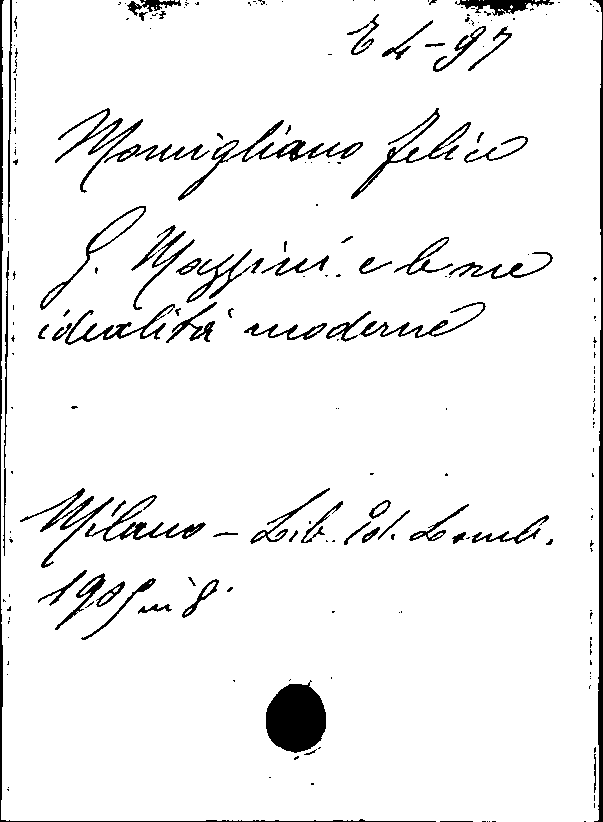 E 4-97
Momigliano Felice
G. Mazzini e le sue
idealità moderne
Milano - Lib. Ed. Lomb.
1905 in 8°